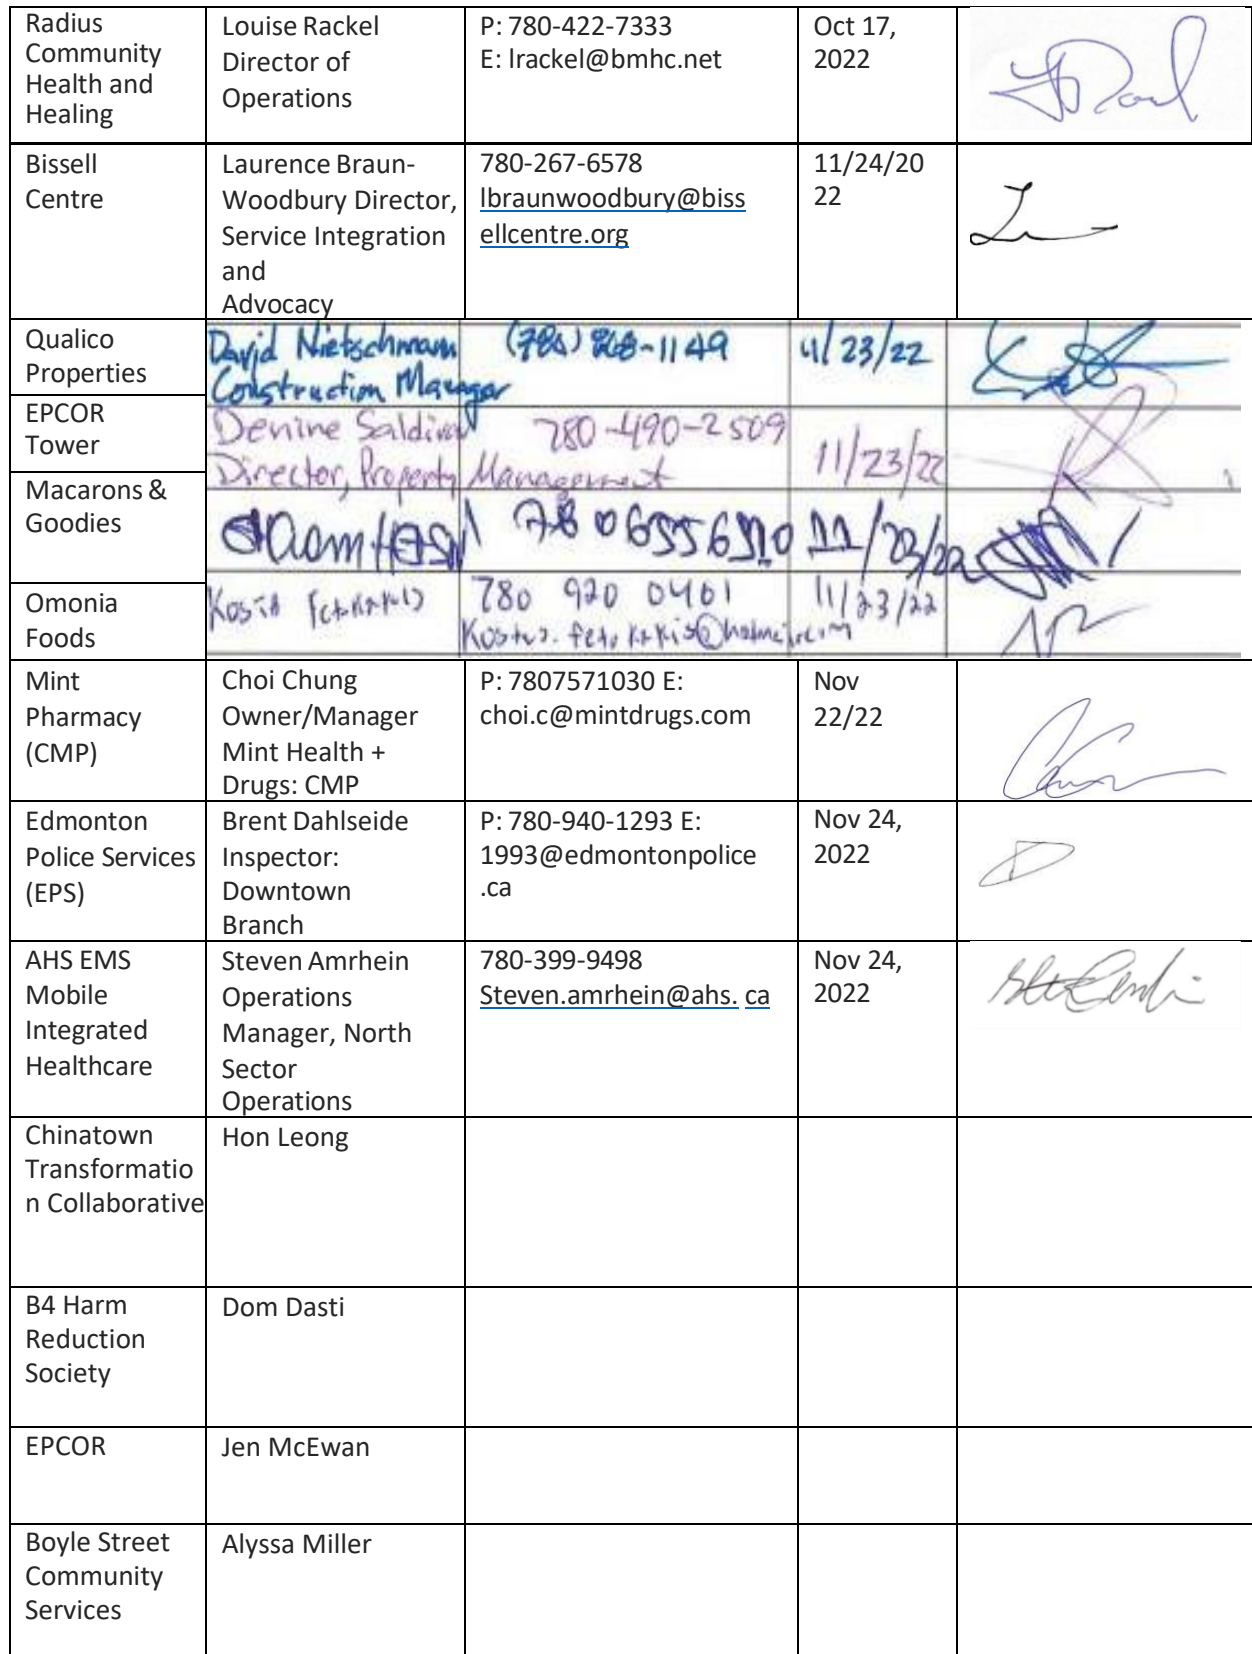 Radius
Community
Health and
Healing
Louise Rackel
Director of
Operations
P: 780-422-7333
E: lrackel@bmhc.net
Oct 17,
2022
Bissell
Centre
Laurence Braun-
Woodbury Director,
Service Integration
and
Advocacy
780-267-6578
lbraunwoodbury@biss
ellcentre.org
11/24/20
22
Qualico
Properties
David Nietschmann
Construction Manager
-1149
/23/22
EPCOR
Tower
Denine
Director, Property Management
780-490-2509
11/23/22
Macarons &
Goodies
11/23/22
Omonia
Foods
780 920 0401
11/23/22
Mint
Pharmacy
(CMP)
Choi Chung
Owner/Manager
Mint Health +
Drugs: CMP
P: 7807571030 E:
choi.c@mintdrugs.com
Nov
22/22
Edmonton
Police Services
(EPS)
Brent Dahlseide
Inspector:
Downtown
Branch
P: 780-940-1293 E:
1993@edmontonpolice
.ca
Nov 24,
2022
AHS EMS
Mobile
Integrated
Healthcare
Steven Amrhein
Operations
Manager, North
Sector
Operations
780-399-9498
Steven.amrhein@ahs. ca
Nov 24,
2022
Chinatown
Transformatio
n Collaborative
Hon Leong
B4 Harm
Reduction
Society
Dom Dasti
EPCOR
Jen McEwan
Boyle Street
Community
Services
Alyssa Miller